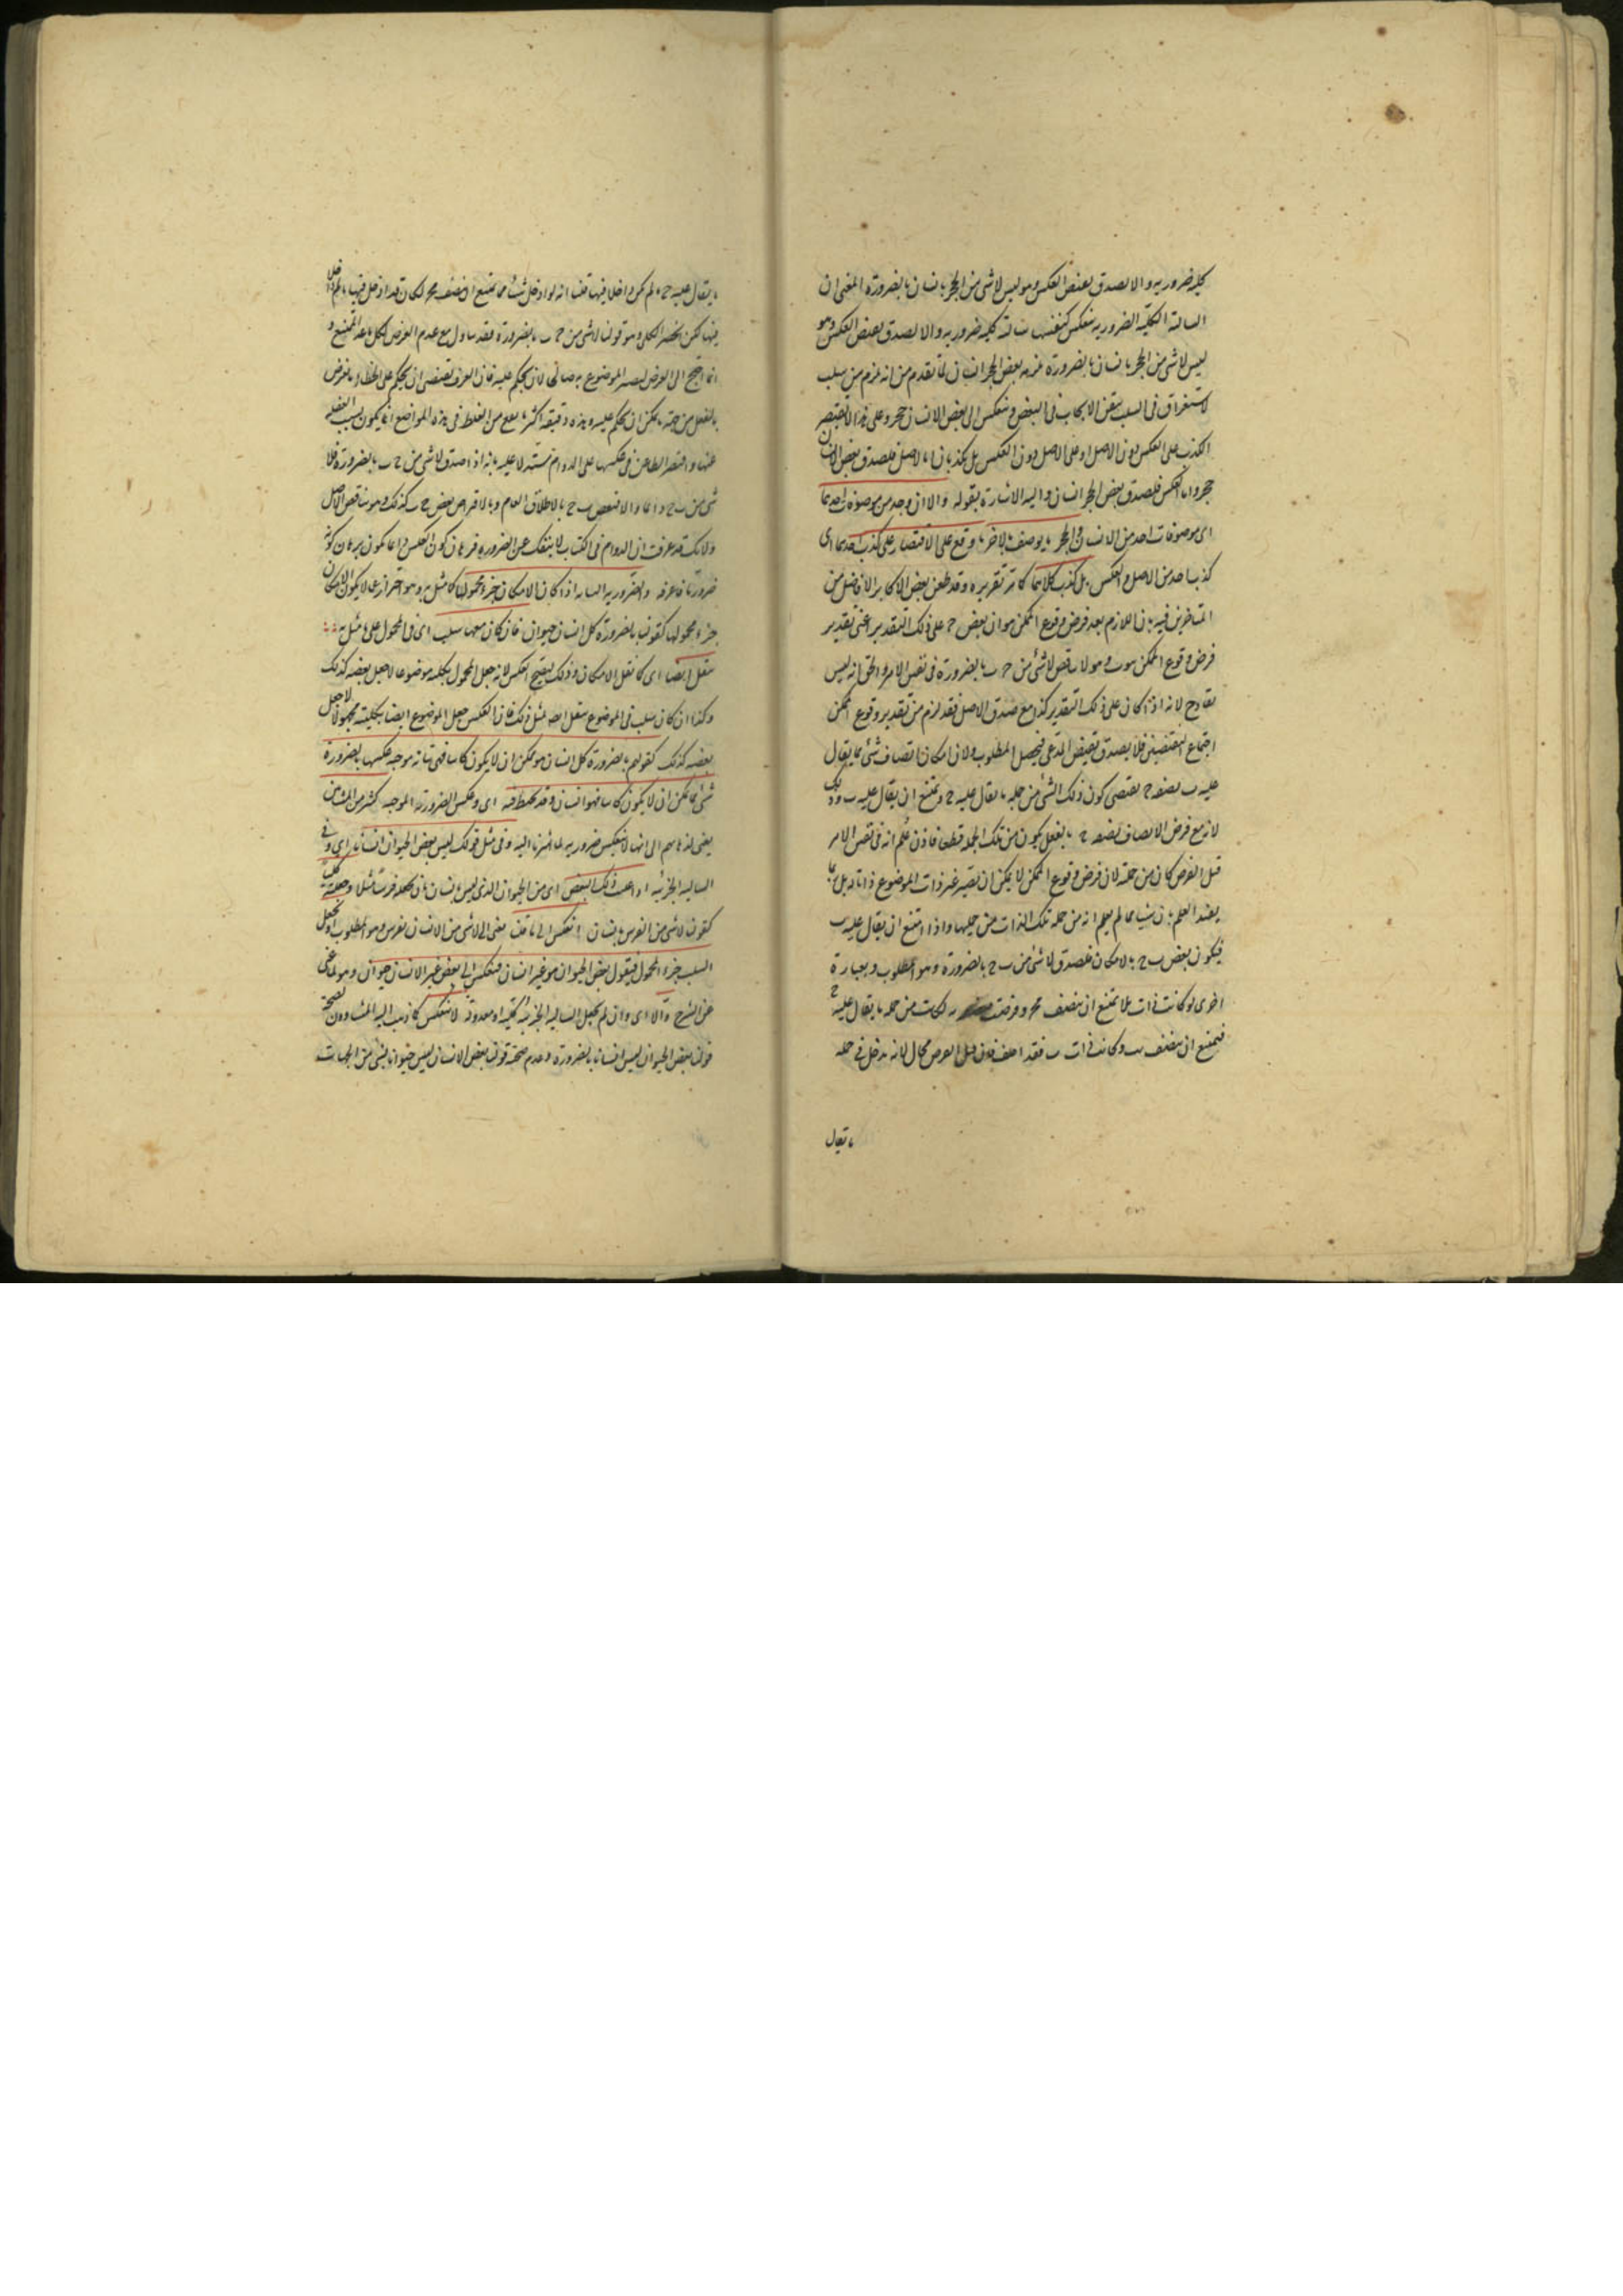 كلية ضرورية والا لصدق بعض العكس وهو ليس لاشئ من الحجر بانسان بالضرورة المعنى ان
السالبة الكلية الضرورية تنعكس كنفسها سالبة كلية ضرورية والا لصدق نقيض العكس وهو
ليس لاشئ من الحجر بانسان بالضرورة يلزمه بعض الحجر انسان لما تقدم من انه يلزم من سلب
الاستغراق في السلب تيقن الايجاب في البعض وينعكس الى بعض الانسان حجر وعلى هذا لا يقتصر
الكذب على العكس دون الاصل او على الاصل دون العكس بل يكذبان اما الاصل فلصدق بعض الانسان
حجر واما العكس فلصدق بعض الحجر انسان واليه الاشارة بقوله والا ان وجد من موصوفات احدهما
اى موصوفات احد من الانسان والحجر ما يوصف بالاخر ما وقع على الاقتصار على كذب احدهما اى
كذب احد من الاصل والعكس بل كذب كلاهما كما مر تقريره وقد طعن بعض الاكابر الافاضل من
المتاخرين فيه بان اللازم بعد فرض وقوع الممكن هو ان بعض ح على ذلك التقدير اعنى تقدير
فرض وقوع الممكن هو ب وهو لا يناقض لاشئ من ح ب بالضرورة في نفس الامر والحق انه ليس
بقادح لانه اذا كان على ذلك التقدير كذا مع صدق الاصل فقد لزم من تقدير وقوع الممكن
اجتماع النقيضين فلا يصدق نقيض المدعى فيحصل المطلوب ولان امكان اتصاف شئ مما يقال
عليه ب بصفة ح يقتضى كون ذلك الشئ من جملة ما يقال عليه ح ويمتنع ان يقال عليه ب وذلك
لانه مع فرض الاتصاف بصفة ح بالفعل يكون من تلك الجملة قطعا فاذن علم انه في نفس الامر
قبل الفرض كان من جملته لان فرض وقوع الممكن لا يمكن ان يصير غير ذات الموضوع ذاتا له بل انما
يفيد العلم بان شيئا مما لم يعلم انه من جملة تلك الذات من جملتها واذا امتنع ان يقال عليه ب
فيكون بعض ب ح بالامكان فلصدق لاشئ من ب ح بالضرورة وهو المطلوب وبعبارة
اخرى لو كانت ذات ب لا يمتنع ان يتصف بح وفرضت لكانت من جملة ما يقال عليه ح
فيمتنع ان يتصف ب وكانت ذات ب فقد اتصف فان قيل الفرض محال لانه يدخل في جملة
ما يقال
ما يقال عليه ح ما لم يكن داخلا فيها قلنا انه لو ادخل شيئا مما يمتنع ان يتصف بح لكان قد ادخل فيها ما لم يدخل
فيها لكن الحصر الكلى وهو قولنا لاشئ من ح ب بالضرورة فقد يتناول مع عدم الفرض لكل ما عدا الممتنع و
انما احتيج الى الفرض ليصير الموضوع به صالحا لان يحكم عليه فان العرف يقتضى ان يحكم على الملحوظ بالفرض
بالفعل من جهة ما يمكن ان يحكم عليه وهذه دقيقة اكثر ما يقع من الغلط في هذه المواضع انما يكون بسبب الغفلة
عنها واقتصر الطاعن في عكسها على الدوام مستدلا عليه بانه اذا صدق لاشئ من ح ب بالضرورة فلا
شئ من ب ح دائما والا فبعض ب ح بالاطلاق العام وبالافتراض بعض ح ب كذلك وهو يناقض الاصل
ولانك قد عرفت ان الدوام في الكتاب لا ينفك عن الضرورة فبرهان كون العكس دائما يكون برهان كونه
ضروريا فاعرفه والضرورية السالبة اذا كان الامكان جزء محمولها كما مثل به وهو احتراز عما لا يكون الامكان
جزء محمولها كقولنا بالضرورة كل انسان حيوان فان كان معها سلب اى في المحمول على ما مثل به
ينقل ايضا اى كما نقل الامكان وذلك ليصح العكس لانه جعل المحمول بكليته موضوعا لا جعل بعضه كذلك
وكذا ان كان سلب في الموضوع ينقل ايضا لمثل ذلك فان العكس جعل الموضوع ايضا بكليته محمولا لا جعل
بعضه كذلك كقولهم بالضرورة كل انسان هو ممكن ان لا يكون كاتبا فهى بتاتة موجبة عكسها بالضرورة
شئ مما يمكن ان لا يكون كاتبا فهو انسان وقد يخبط فيه اى وعكس الضرورية الموجبة كثير من المشائين
يعنى لذهابهم الى انها لا تنعكس ضرورية لما اشرنا اليه وفى مثل قولك ليس بعض الحيوان انسانا اى وفى
السالبة الجزئية اذا عينت ذلك البعض اى من الحيوان الذى ليس بانسان بان تجعله فرسا مثلا وجعلته كليا
كقولنا لاشئ من الفرس بانسان انعكس الى ما قلنا يعنى الى لاشئ من الانسان بفرس وهو المطلوب او تجعل
السلب جزء المحمول فيقول بعض الحيوان هو غير انسان فينعكس الى بعض غير الانسان حيوان وهو لما غنى
عن الشرح والا اى وان لم تجعل السالبة الجزئية كلية او معدولة لا تنعكس كما ذهب اليه المشاءون لصحة
قولنا بعض الحيوان ليس انسانا بالضرورة وعدم صحة قولنا بعض الانسان ليس حيوانا بشئ من الجهات